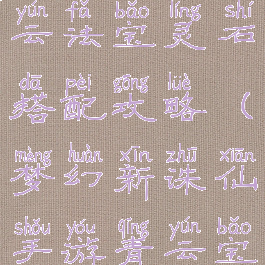 yún fǎ bǎo líng shí
云法宝灵石
dā pèi gōng lüè
搭配攻略（
mèng huàn xīn zhū xiān
梦幻新诛仙
shǒu yóu qīng yún bǎo
手游青云宝